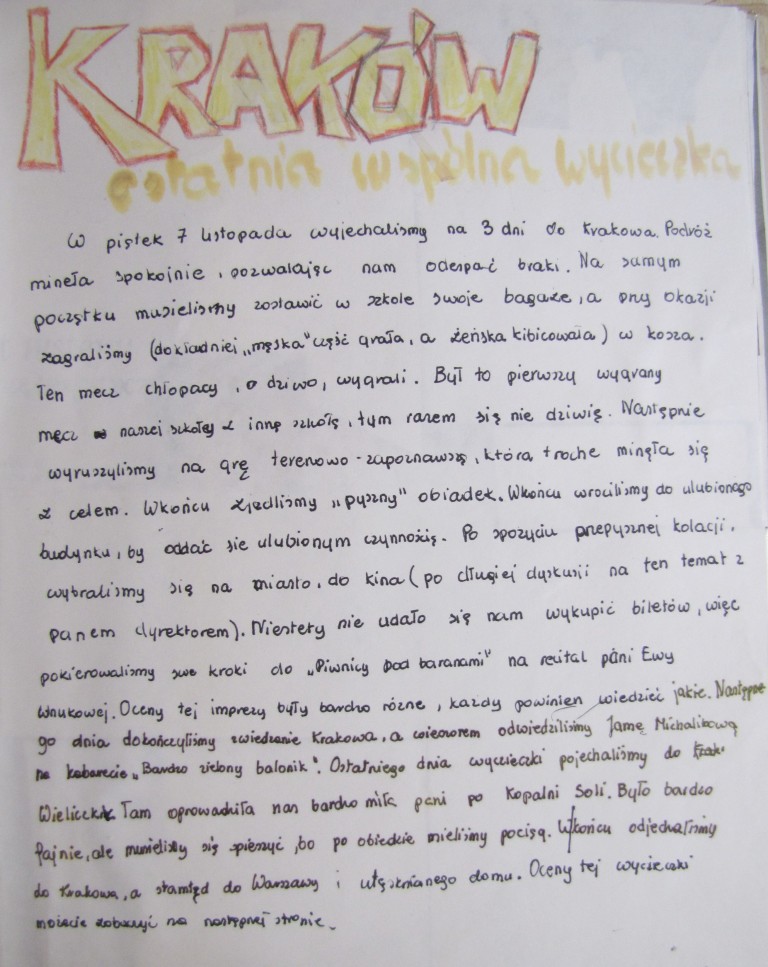 KRAKÓW
ostatnia wspólna wycieczka
W piątek 7 listopada wyjechalismy na 3 dni do Krakowa. Podróż
mineła spokojnie, pozwalając nam odespać braki. Na samym
początku musielismy zostawić w szkole swoje bagaże, a przy okazji
zagraliśmy (dokładniej „męska" część grała, a żeńska kibicowała) w kosza.
Ten mecz chłopacy, o dziwo, wygrali. Był to pierwszy wygrany
mecz naszej szkoły z inną szkołą, tym razem się nie dziwię. Następnie
wyruszylismy na grę terenowo-zapoznawszą, która troche minęła się
z celem. Wkońcu zjedlismy „pyszny" obiadek. Wkońcu wrocilismy do ulubionego
budynku, by oddać sie ulubionym czynnością. Po spozyciu przepysznej kolacji,
wybralismy się na miasto, do kina (po długiej dyskusji na ten temat z
panem dyrektorem). Niestety nie udało się nam wykupić biletów, więc
pokierowalismy swe kroki do „Piwnicy pod baranami" na recital pani Ewy
Wnukowej. Oceny tej imprezy były bardzo różne, każdy powinien wiedzieć jakie. Następne
go dnia dokończylismy zwiedzanie Krakowa, a wieczorem odwiedziliśmy Jamę Michalikową
na kabarecie „Bardzo zielony balonik". Ostatniego dnia wycieczki pojechaliśmy do
Wieliczki. Tam oprowadziła nas bardzo miła pani po Kopalni Soli. Było bardzo
fajnie, ale musieliśmy się spieszyć, bo po obiedzie mieliśmy pociąg. Wkońcu odjechalismy
do Krakowa, a stamtąd do Warszawy i utęsknianego domu. Oceny tej wycieczki
możecie zobaczyć na następnej stronie.